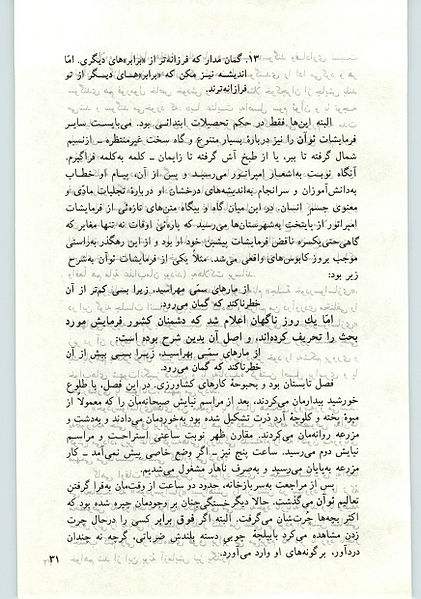 ۱۳. گمان مدار که فرزانه‌تر از «برابر»های دیگری. امّا
اندیشه نیز مکن که «برابر»های دیگر از تو
فرزانه‌ترند.
البته این‌ها فقط در حکم تحصیلات ابتدائی بود. می‌بایست سایر
فرمایشات توآن را نیز دربارهٔ بسیار متنوع و گاه سخت غیرمنتظره ــ ازنسیم
شمال گرفته تا ببر، یا از طبخ آش گرفته تا زایمان ــ کلمه به‌کلمه فراگیرم.
آنگاه نوبت به‌اشعار امپراتور می‌رسید و پس از آن، پیام او خطاب
به‌دانش‌آموزان و سرانجام به‌اندیشه‌های درخشان او دربارهٔ تجلیات مادّی و
معنوی جسم انسان. در این میان گاه و بیگاه متن‌های تازه‌ئی از فرمایشات
امپراتور از پایتخت به‌شهرستان‌ها می‌رسید که پاره‌ئی اوقات نه تنها مغایر که
گاهی حتی یکسره ناقض فرمایشات پیشین خود او بود و از این رهگذر به‌راستی
موجب بروز کابوس‌های واقعی می‌شد. مثلاً یکی از فرمایشات توآن به‌شرح
زیر بود:
از مارهای سمّی مهراسید، زیرا بسی کم‌تر از آن
خطرناکند که گمان می‌رود.
امّا یك روز ناگهان اعلام شد که دشمنان کشور فرمایش مورد
بحث را تحریف کرده‌اند، و اصل آن بدین شرح بوده است:
از مارهای سمّی بهراسید، زیرا بسی بیش از آن
خطرناکند که گمان می‌رود.
فصل تابستان بود و بحبوحهٔ کارهای کشاورزی. در این فصل، با طلوع
خورشید بیدارمان می‌کردند، بعد از مراسم نیایش صبحانه‌مان را که معمولا از
میوهٔ پخته و کلوچهٔ آرد ذرت تشکیل شده بود به‌خوردمان می‌دادند و به‌دشت و
مزرعه روانه‌مان می‌کردند. مقارن ظهر نوبت ساعتی استراحت و مراسم
نیایش دوم می‌رسید. ساعت پنج نیز ــ اگر وضع خاصی پیش نمی‌آمد ــ کار
مزرعه به‌پایان می‌رسید و به‌صرف ناهار مشغول می‌شدیم.
پس از مراجعت به‌سربازخانه، حدود دو ساعت از وقت‌مان به‌فرا گرفتن
تعالیم توآن می‌گذشت. حالا دیگر خستگی‌چنان بر وجودمان چیره شده بود که
اکثر بچه‌ها چرت‌شان می‌گرفت. البته اگر فوق برابر کسی را درحال چرت
زدن مشاهده می‌کرد با بیلچهٔ چوبی دسته بلندش ضرباتی، گرچه نه چندان
دردآور، برگونه‌های او وارد می‌آورد.
۳۱